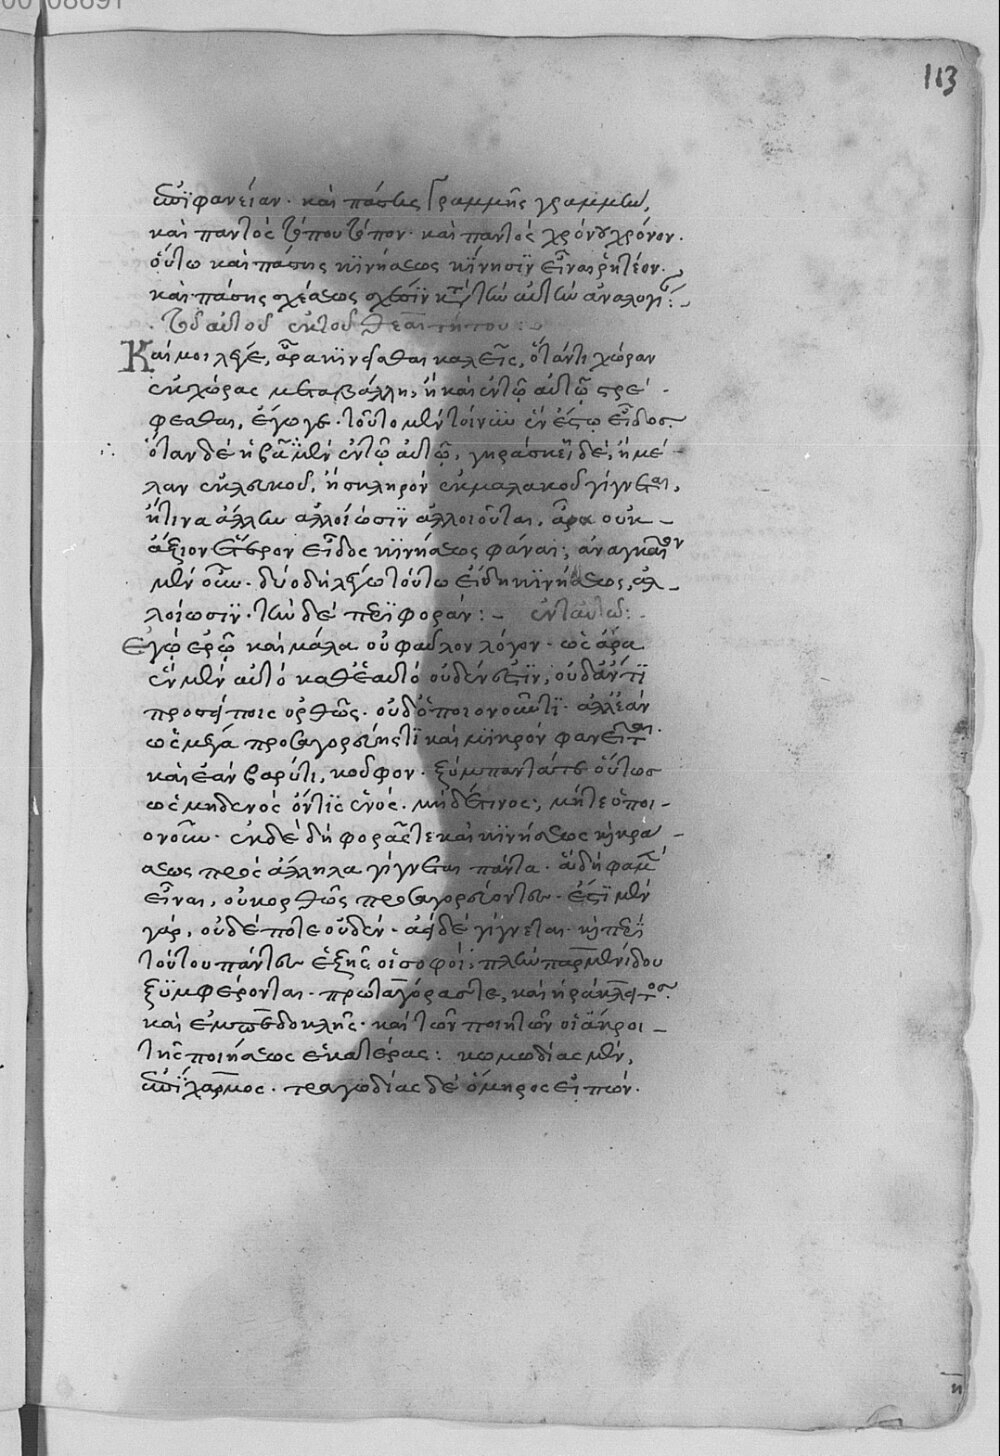 113
ἐπιφανείαν· καὶ πάσης γραμμῆς γραμμὴν,
καὶ παντὸς τόπου τόπον· καὶ παντὸς χρόνου χρόνον·
οὕτω καὶ πάσης κινήσεως κίνησιν εἶναι ῥητέον·
καὶ πάσης σχέσεως σχέσιν κατὰ τὴν αὐτὴν ἀναλογί:
τοῦ αὐτοῦ ἐκ τοῦ θεαιτήτου:
Καί μοι λέγε, ἆρα κινεῖσθαι καλεῖς, ὅταν τι χώραν
ἐκ χώρας μεταβάλλη, ἢ καὶ ἐν τῷ αὐτῷ στρέ
φεσθαι, ἔγωγε· τοῦτο μὲν τοίνυν ἓν ἔστω εἶδος·
ὅταν δὲ ἢ μὲν ἐν τῷ αὐτῷ, γηράσκει δὲ, ἢ μέ
λαν ἐκ λευκοῦ, ἢ σκληρὸν ἐκ μαλακοῦ γίγνεται,
ἤ τινα ἄλλην ἀλλοίωσιν ἀλλοιοῦται, ἆρα οὐκ
ἄξιον ἕτερον εἶδος κινήσεως φάναι; ἀναγκαῖον
μὲν οὖν· δύο δὴ λέγω τούτω εἴδη κινήσεως, ἀλ
λοίωσιν· τὴν δὲ περιφοράν: ἐν ταυτῶ:
Ἐγὼ ἐρῶ καὶ μάλα οὐ φαῦλον λόγον· ὡς ἄρα
ἓν μὲν αὐτὸ καθ' ἑαυτὸ οὐδέν ἐστιν, οὐδ' ἄν τι
προσείποις ὀρθῶς· οὐδ' ὁποιονοῦν τι· ἀλλ' ἐὰν
ὡς μέγα προσαγορεύης τι καὶ μικρὸν φανεῖται·
καὶ ἐὰν βαρύ τι, κοῦφον· ξύμπαντά τε οὕτως
ὡς μηδενὸς ὄντος ἑνός· μηδέ τινος, μήτε ὁποι
ονοῦν· ἐκ δὲ δὴ φορᾶς τε καὶ κινήσεως καὶ κρά
σεως πρὸς ἄλληλα γίγνεται πάντα· ἃ δή φαμεν
εἶναι, οὐκ ὀρθῶς προσαγορεύοντες· ἔστι μὲν
γὰρ, οὐδέποτε οὐδὲν· ἀεὶ δὲ γίγνεται· καὶ περὶ
τούτου πάντες ἑξῆς οἱ σοφοὶ, πλὴν παρμενίδου
ξυμφέρονται· πρωταγόρας τε, καὶ ἡράκλειτος·
καὶ ἐμπεδοκλῆς· καὶ τῶν ποιητῶν οἱ ἄκροι
τῆς ποιήσεως ἑκατέρας: κωμωδίας μὲν,
ἐπίχαρμος· τραγωδίας δὲ ὅμηρος εἰπών·